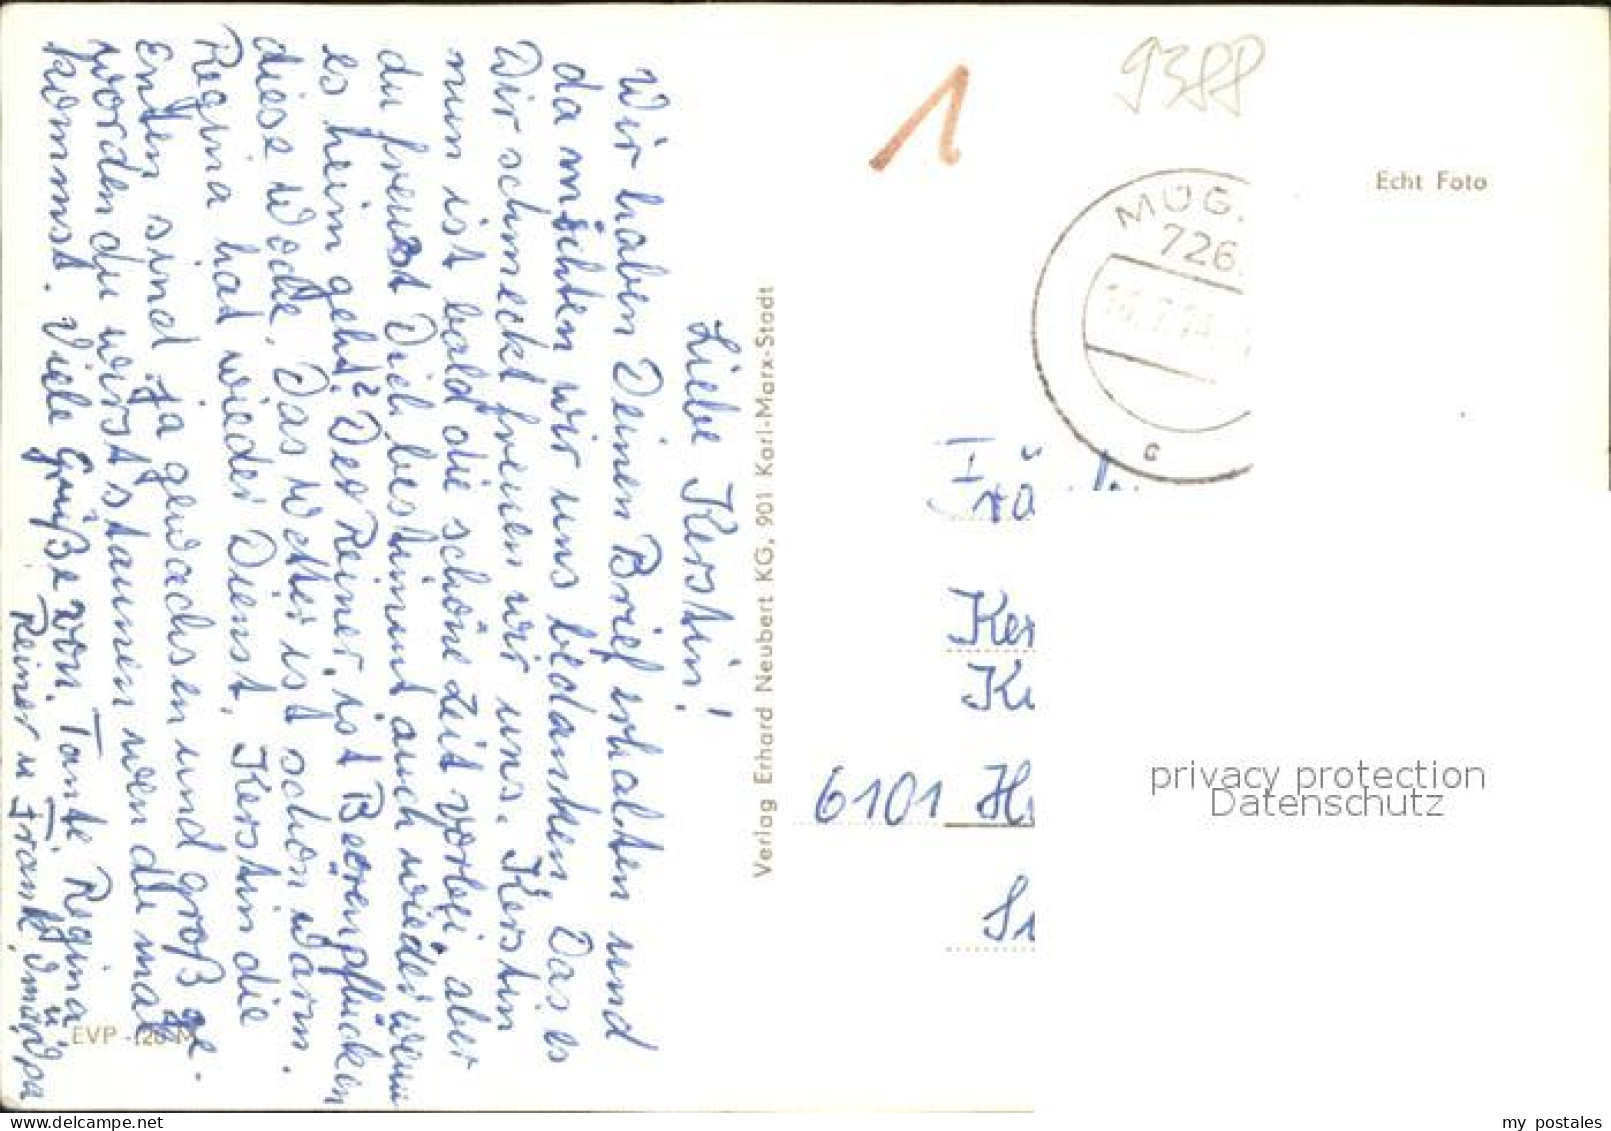 Liebe Kerstin!
Wir haben Deinen Brief erhalten und
da möchten wir uns bedanken, Das es
Dir schmeckt freuen wir uns. Kerstin
nun ist bald die schöne Zeit vorbei, aber
du freust Dich bestimmt auch wieder wenn
es heim geht? Der Reiner, ist Beerenpflücken
diese Woche. Das Wetter ist schon warm.
Regina hat wieder Dienst. Kerstin die
Enten sind ja gewachsen und groß ge-
worden du wirst staunen wen du mal
kommst. Viele Grüße von. Tante Regina
Reiner u Frank, Oma u Opa
EVP -,20 M
Verlag Erhard Neubert KG, 901 Karl-Marx-Stadt
1
9388
Echt Foto
MÜG.
726.
c
Ker
6101
privacy protection
Datenschutz
my postales